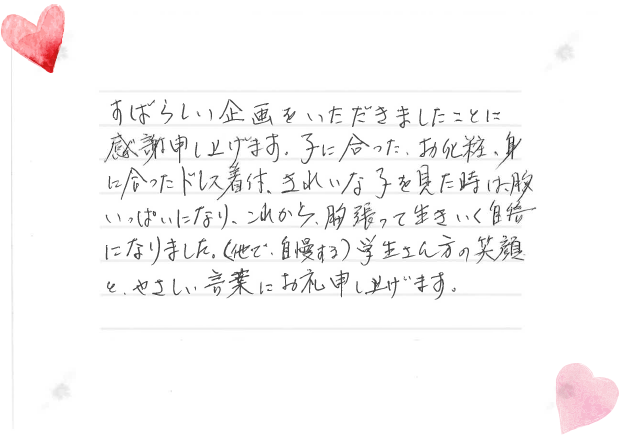 すばらしい企画をいただきましたことに
感謝申し上げます。子に合った、お化粧、身
に合ったドレス着付、きれいな子を見た時は、胸
いっぱいになり、これから、胸張って生きいく自信
になりました。(他で、自慢する)学生さん方の笑顔
と、やさしい言葉にお礼申し上げます。